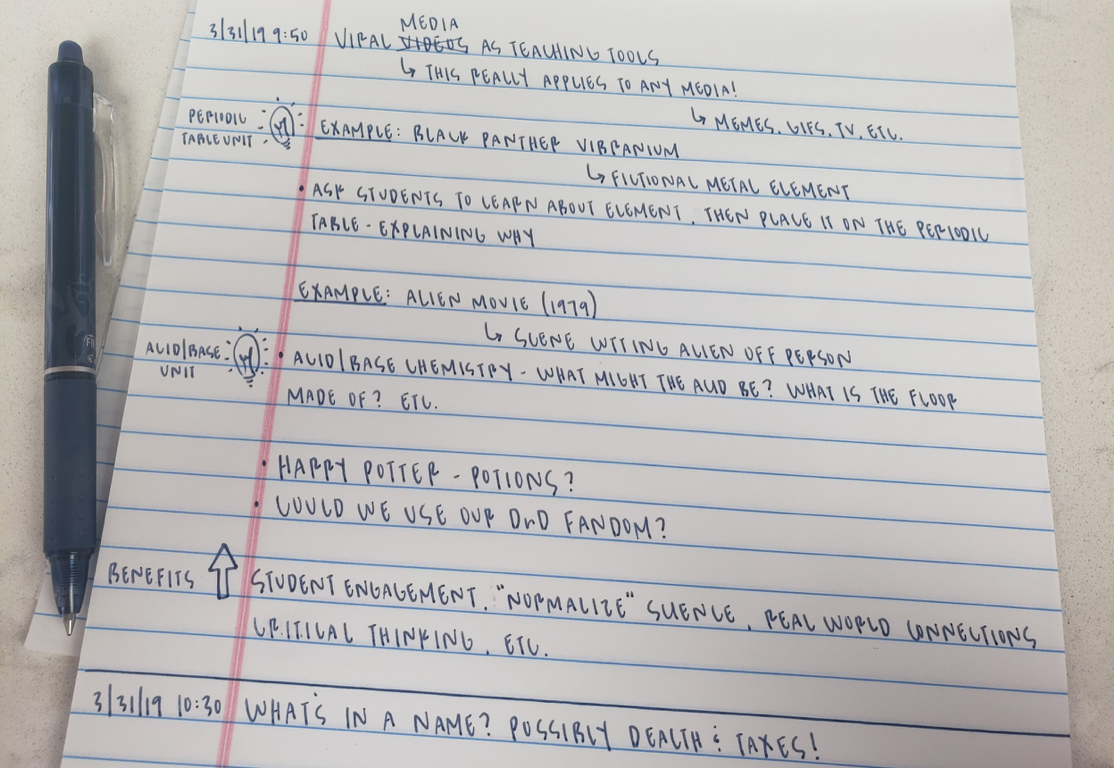 MEDIA
3/31/19 9:50 VIRAL VIDEOS AS TEACHING TOOLS
↳ THIS REALLY APPLIES TO ANY MEDIA!
↳ MEMES, GIFS, TV, ETC.
PERIODIC
TABLE UNIT
EXAMPLE: BLACK PANTHER VIBRANIUM
↳ FICTIONAL METAL ELEMENT
• ASK STUDENTS TO LEARN ABOUT ELEMENT, THEN PLACE IT ON THE PERIODIC
TABLE - EXPLAINING WHY
EXAMPLE: ALIEN MOVIE (1979)
↳ SCENE CUTTING ALIEN OFF PERSON
ACID/BASE
UNIT
• ACID/BASE CHEMISTRY - WHAT MIGHT THE ACID BE? WHAT IS THE FLOOR
MADE OF? ETC.
• HARRY POTTER - POTIONS?
• COULD WE USE OUR DnD FANDOM?
BENEFITS ⇧ STUDENT ENGAGEMENT, "NORMALIZE" SCIENCE, REAL WORLD CONNECTIONS
CRITICAL THINKING, ETC.
3/31/19 10:30 WHAT'S IN A NAME? POSSIBLY DEALTH & TAXES!